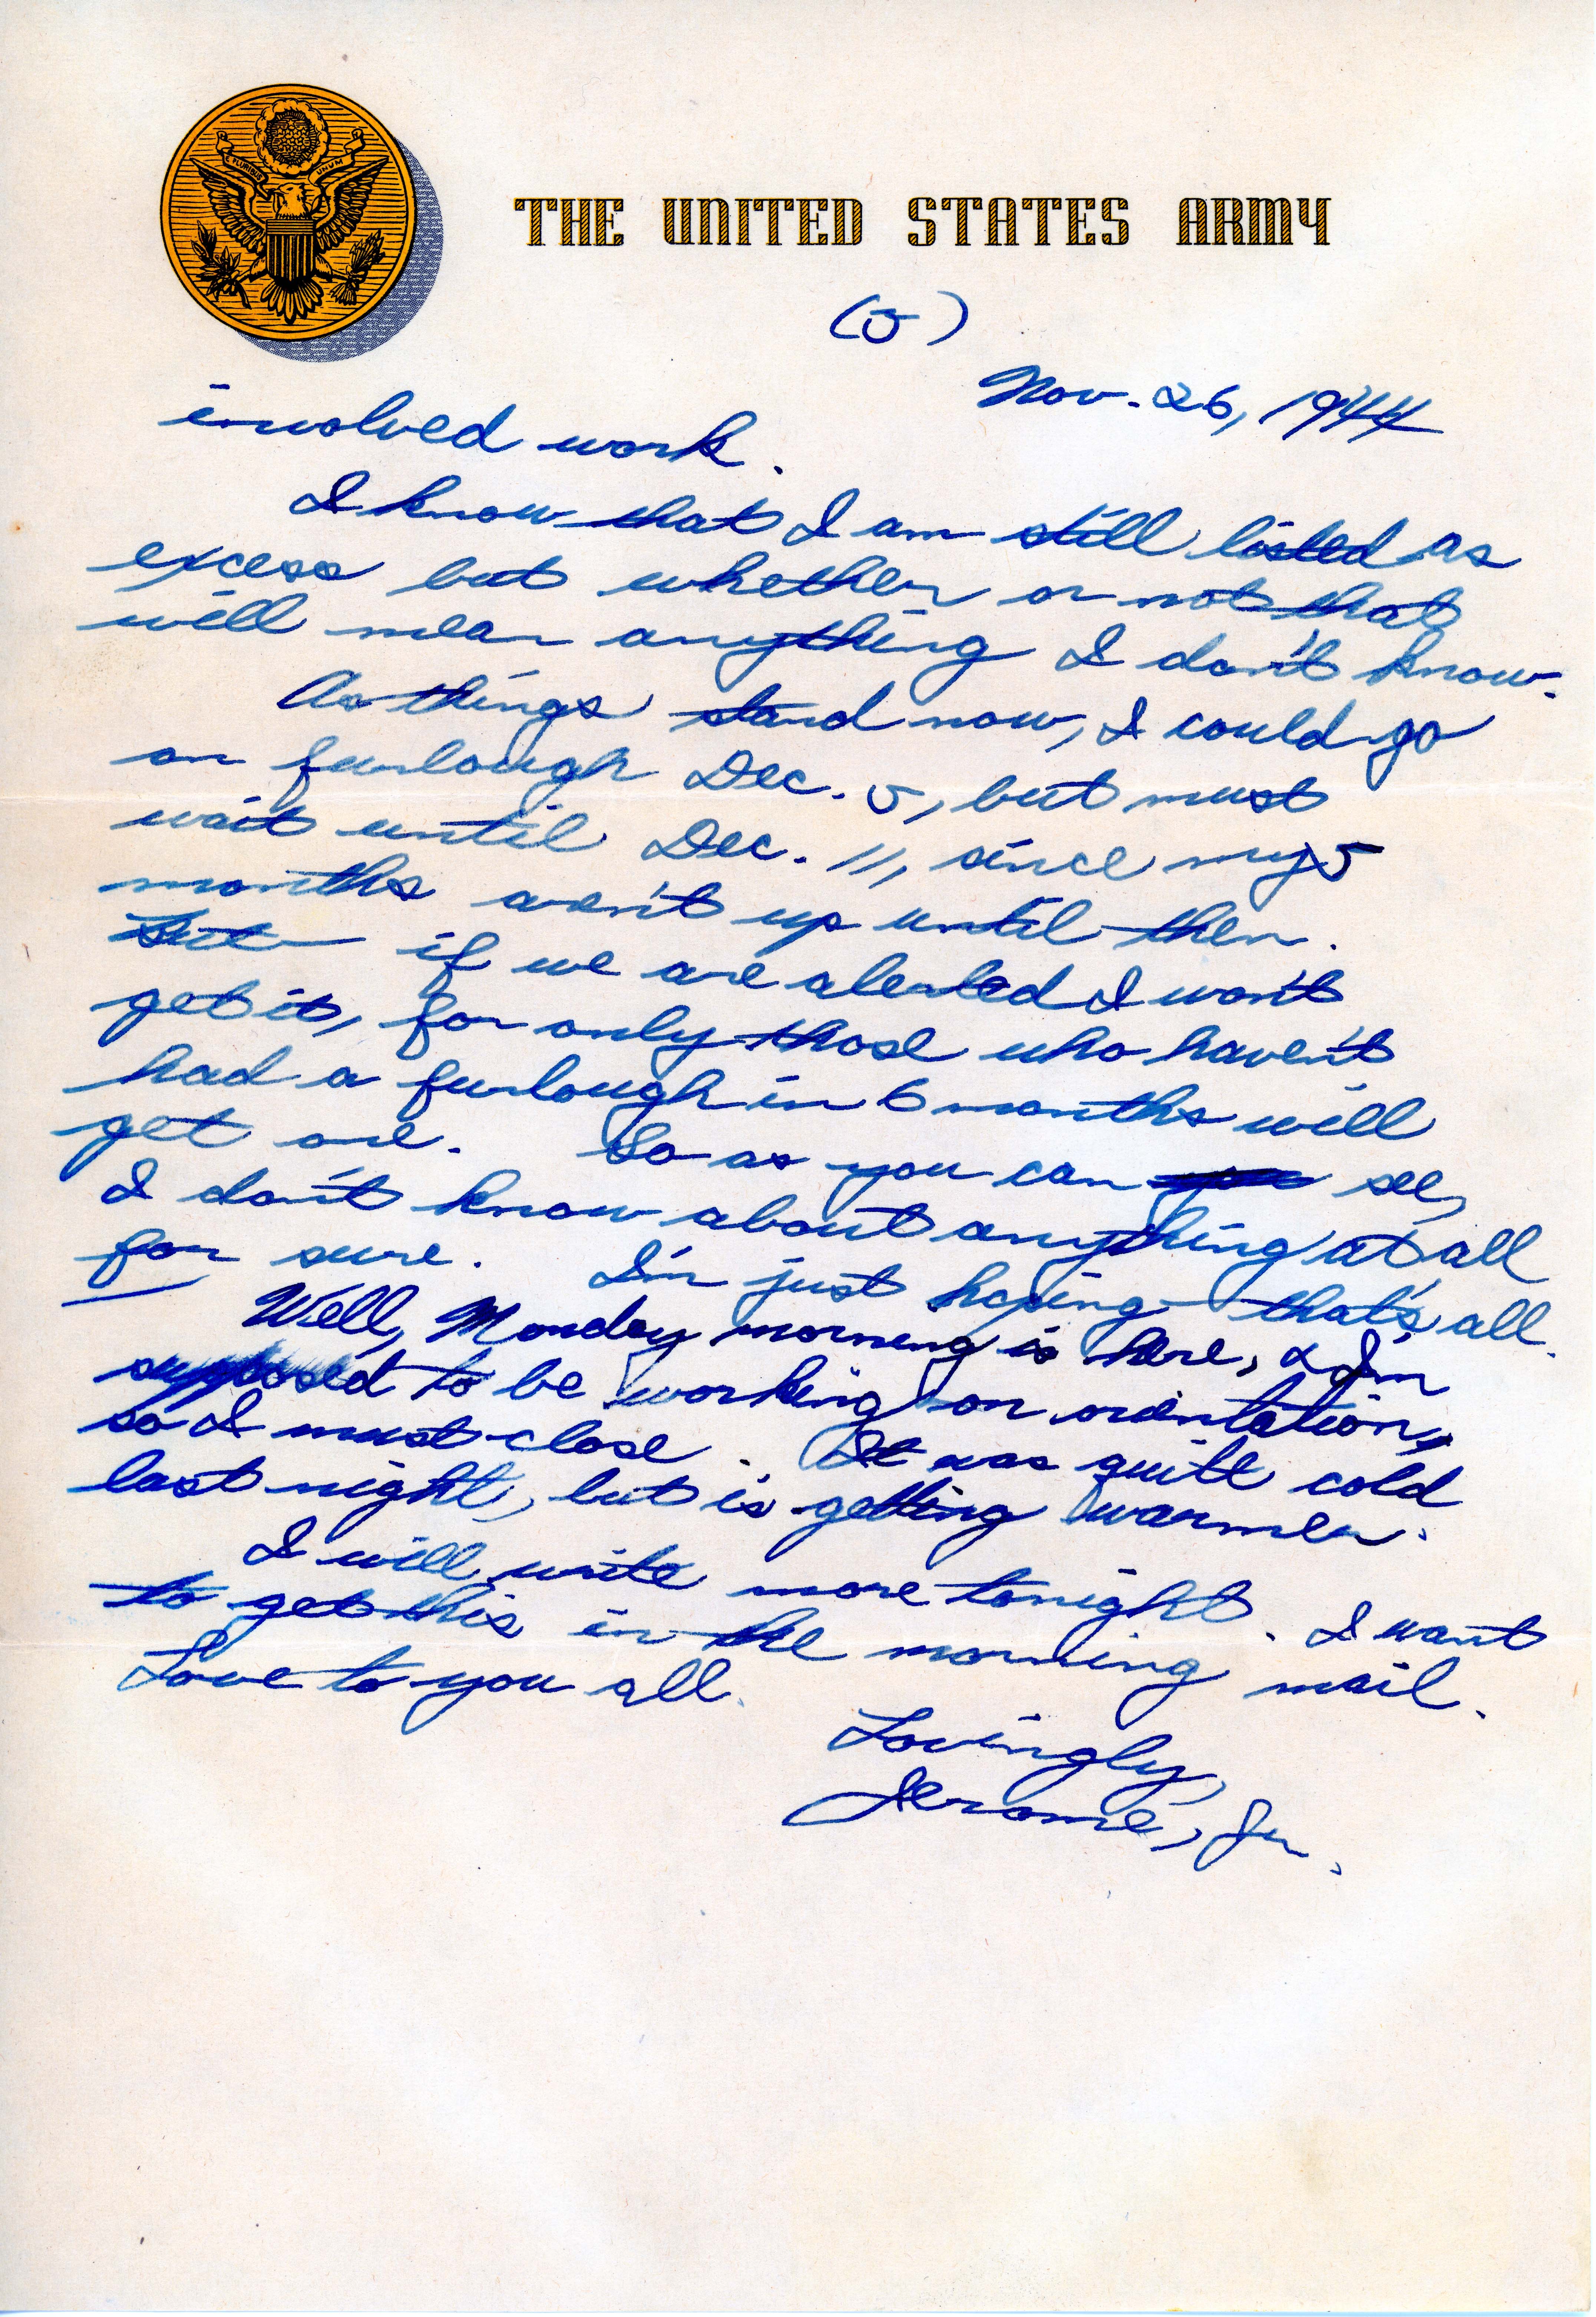 E PLURIBUS UNUM
THE UNITED STATES ARMY
(5)
Nov. 26, 1944
involved work.
I know that I am still listed as
excess but whether or not that
will mean anything I don't know.
As things stand now, I could go
on furlough Dec. 5, but must
wait until Dec. 11, since my 5
months aren't up until then.
But if we are alerted I won't
get it, for only those who haven't
had a furlough in 6 months will
get one. So as you can see,
I don't know about anything at all
for sure. I'm just hoping - that's all.
Well, Monday morning is here, & I'm
supposed to be working on orientation,
so I must close. It was quite cold
last night, but is getting warmer.
I will write more tonight. I want
to get this in the morning mail.
Love to you all.
Lovingly,
Jerome, Jr.